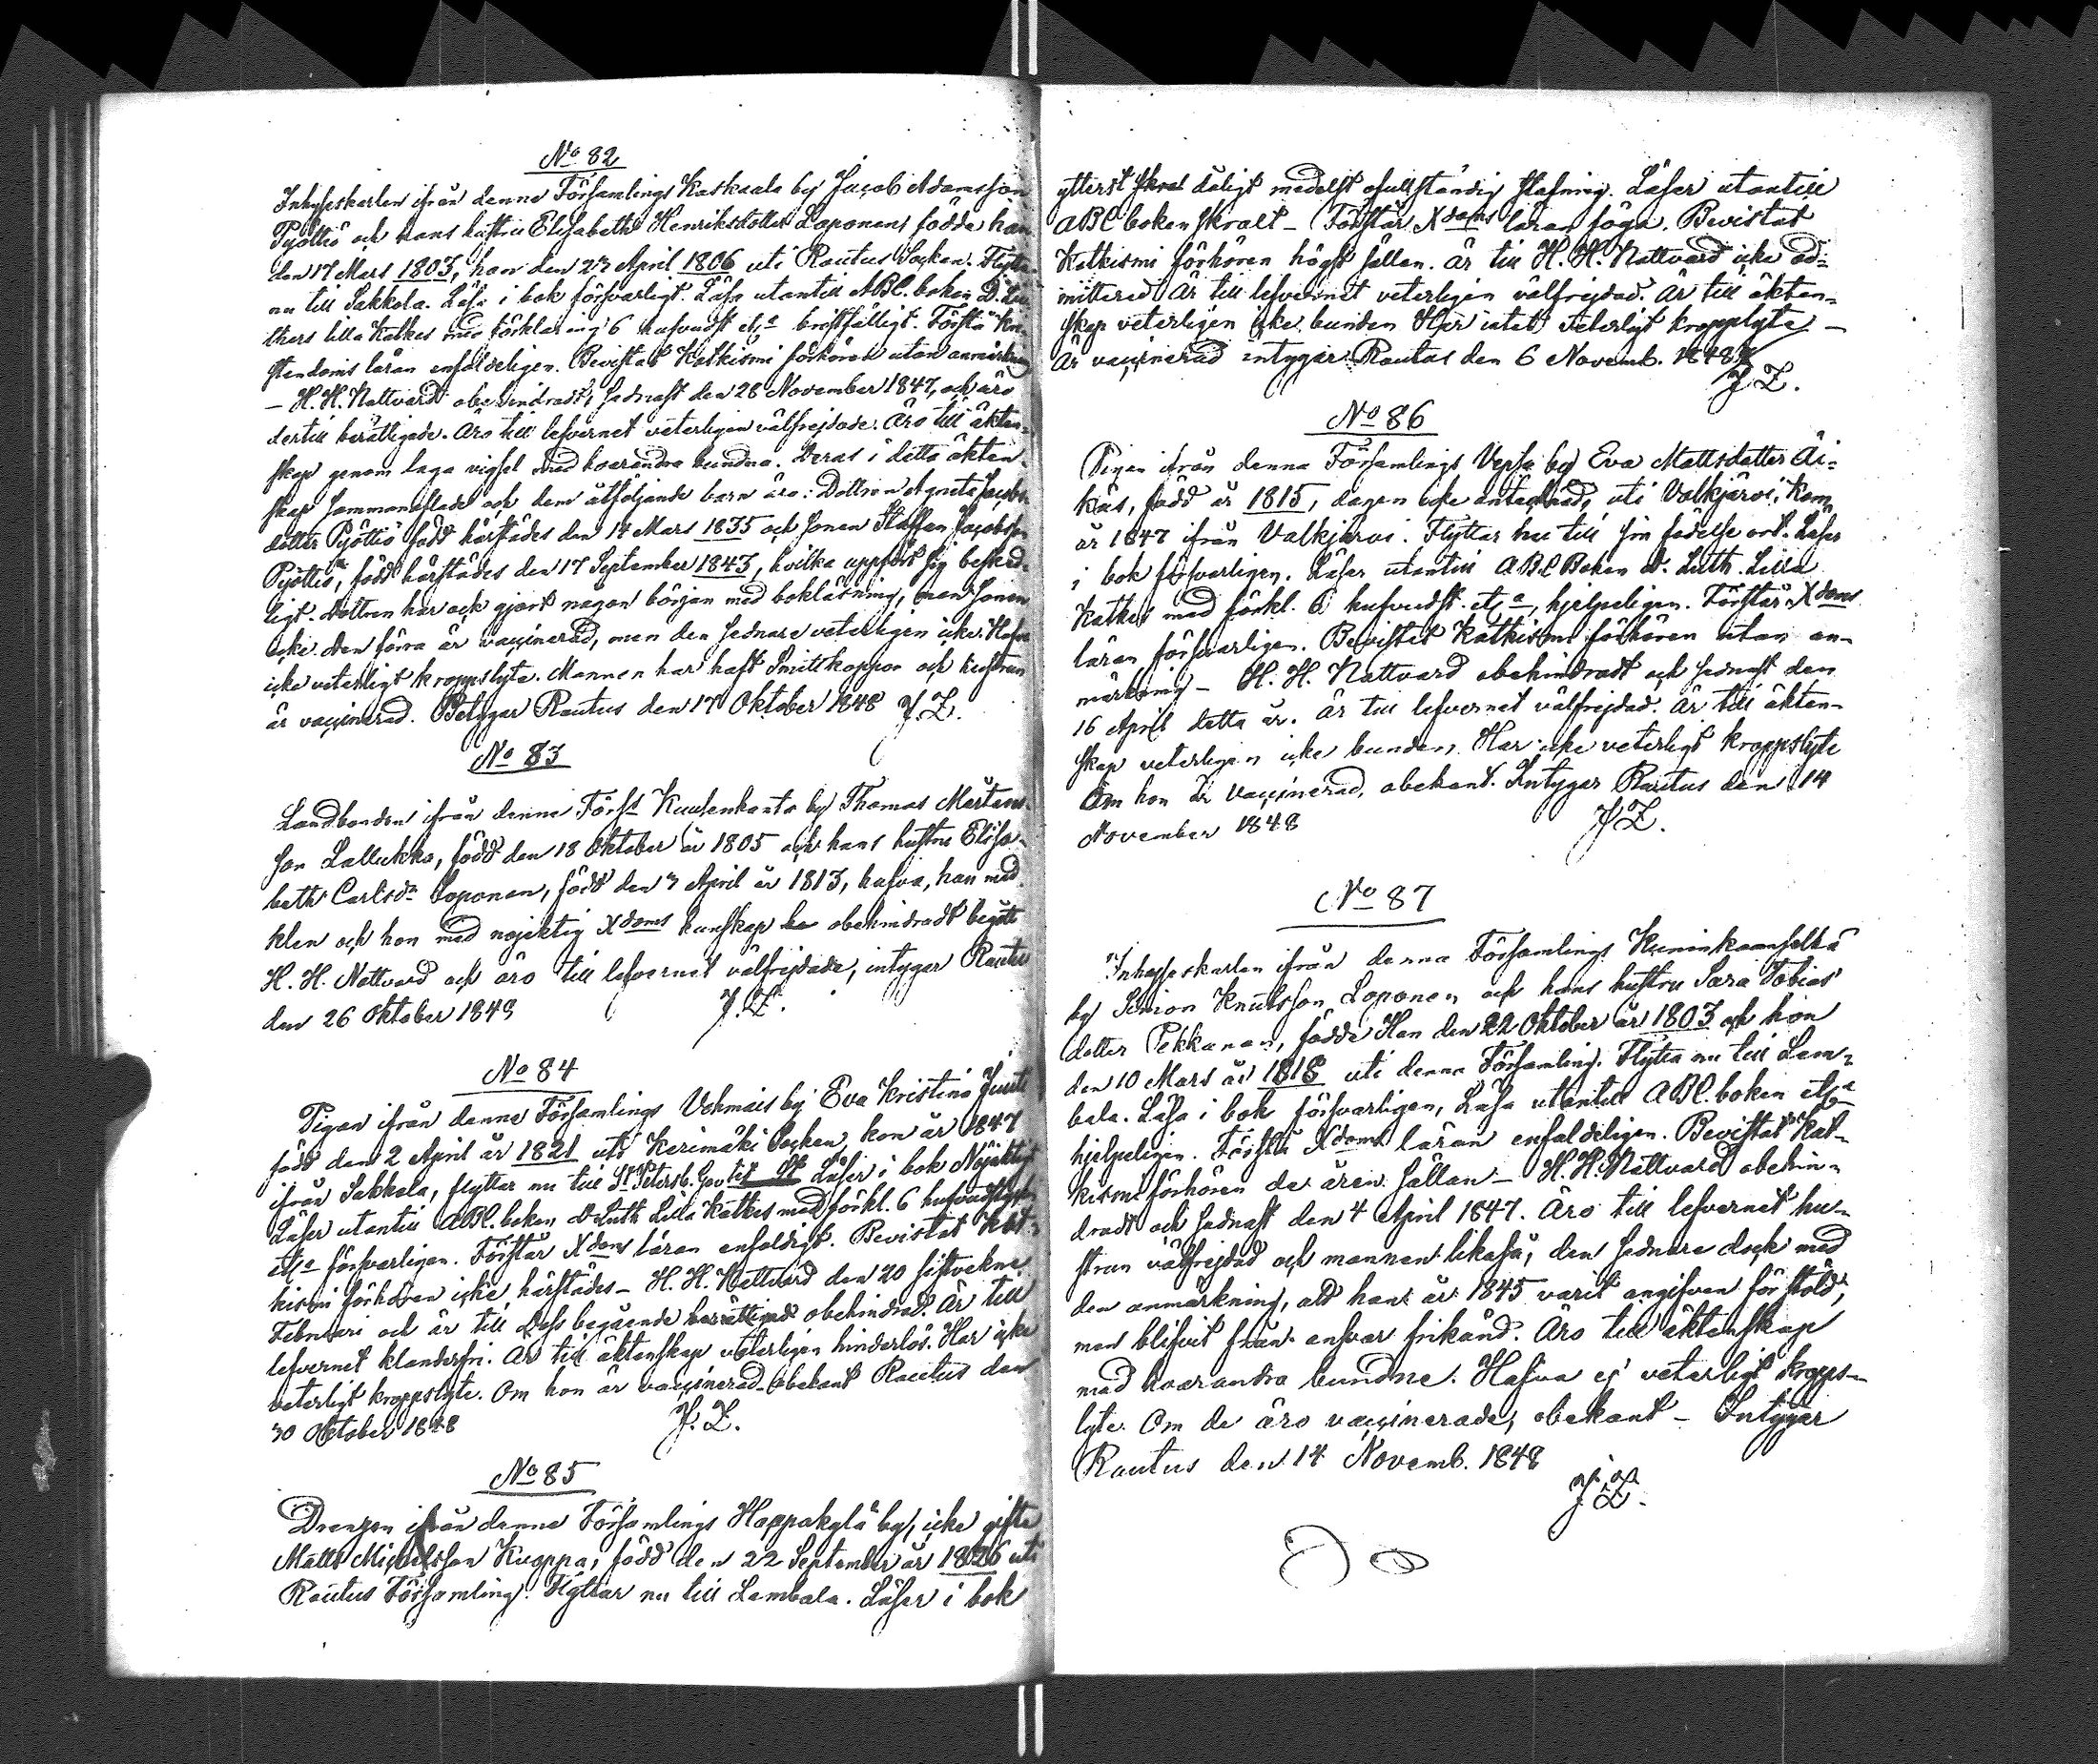 No 82
Inhyseskarlen ifrån denna Församlings Kaskaala by Jacob Adamsson
Pyöttiö och hans hustru Elisabeth Henriksdotter Loponen, födde han
den 17 Mars 1803, hon den 23 April 1806 uti Rautus Socken. Flytta
nu till Sakkola. Läsa i bok försvarligt. Läsa utantill ABC. boken D. Lu-
thers lilla Katkes med förklaring 6 hufvudst etca bristfälligt. Förstå Kri-
stendoms läran enfaldeligen. Bevistat Katkismi förhören utan anmärkning
— H. H. Nattvard obehindradt, sednast den 28 November 1847, och äro
dertill berättigade. Äro till lefvernet veterligen välfrejdade. Äro till äkten-
skap genom laga vigsel med hvarandra bundna. Deras i detta äkten-
skap sammanaflade och dem åtföljande barn äro: Dottren Agneta Jacobs
dotter Pyöttiö född härstädes den 14 Mars 1835 och sonen Staffan Jacobsson
Pyöttiö, född härstädes den 17 September 1843, hvilka uppfört sig besked-
ligt. Dottren har ock gjort någon början med bokläsning, men sonen
icke. Den förra är vaccinerad, men den sednare veterligen icke. Hafva
icke veterligt kroppslyte. Mannen har haft Smittkoppor och hustrun
är vaccinerad. Betygar Rautus den 17 Oktober 1848 J. Z.
No 83
Landbonden ifrån denna Förs. Kuusenkanta by Thomas Mårtens
son Lallukka, född den 18 Oktober år 1805 och hans hustru Elisa-
beth Carlsdr Loponen, född den 3 April år 1813, hafva, han med
klen och hon med nöjaktig Xdoms kunskap obehindradt begått
H. H. Nattvard och äro till lefvernet välfrejdade, intygar Rautus
den 26 Oktober 1848 J. Z.
No 84
Pigan ifrån denna Församlings Vehmais by Eva Kristina
född den 2 April år 1821 uti Kerimäki Socken, kom år 1847
ifrån Sakkola, flyttar nu till St Petersb. Gouv. Läser i bok Nöjaktigt
Läser utantill ABC. boken D. Luth Lilla Katkes med förkl. 6 hufvudstycken
etca försvarligen. Förstår Xdoms läran enfaldigt. Bevistat Kat-
kismi förhören icke härstädes — H. H. Nattvard den 20 sistvekne
Februari och är till dess begående berättigad obehindrad. Är till
lefvernet klanderfri. Är till äktenskap veterligen hinderlös. Har icke
veterligt kroppslyte. Om hon är vaccinerad obekant Rautus den
30 Oktober 1848 J. Z.
No 85
Drengen ifrån denna Församlings Haapakylä by, icke gifte
Matts Michelsson Kuoppa, född den 22 September år 1826 uti
Rautus Församling. Flyttar nu till Lembala. Läser i bok
ytterst dåligt medelst ofullständig stafning. Läser utantill
ABC boken skralt — Förstår Xdoms läran föga. Bevistat
Katkismi förhören högst sällan. Är till H. H. Nattvard icke ad-
mitterad Är till lefvernet veterligen välfrejdad. Är till äkten-
skap veterligen icke bunden Har intet veterligt kroppslyte —
Är vaccinerad intygar Rautus den 6 Novemb. 1848
J. Z.
No 86
Pigan ifrån denna Församlings Vepsa by Eva Mattsdotter Äi-
käs, född år 1815, dagen icke antecknad, uti Valkjärvi, kom
år 1847 ifrån Valkjärvi. Flyttar nu till sin födelse ort. Läser
i bok försvarligen. Läser utantill ABC Boken D. Luth. Lilla
Katkes med förkl. 6 hufvudst. etca, hjelpeligen. Förstår Xdoms
läran försvarligen. Bevistat Katkismi förhören utan an-
märkning — H. H. Nattvard obehindradt och sednast den
16 April detta år. Är till lefvernet välfrejdad. Är till äkten-
skap veterligen icke bunden. Har icke veterligt kroppslyte
Om hon är vaccinerad, obekant. Intygar Rautus den 14
November 1848 J Z.
No 87
Inhyseskarlen ifrån denna Församlings Kuninkaanselkä
by Simon Knutsson Loponen och hans hustru Sara Tobias
dotter Pekkanen, födde Han den 22 Oktober år 1803 och hon
den 10 Mars år 1818 uti denna Församling. Flytta nu till Lem-
bala. Läsa i bok försvarligen, Läsa utantill ABC. boken etca
hjelpeligen. Förstå Xdoms läran enfaldeligen. Bevistat Kat-
kismi förhören de åren sällan — H. H. Nattvard obehin-
dradt och sednast den 4 April 1847. Äro till lefvernet hu-
strun välfrejdad och mannen likaså, den sednare dock med
den anmärkning, att han år 1845 varit angifven för stöld,
men blifvit från ansvar frikänd. Äro till äktenskap
med hvarandra bundne. Hafva ej veterligt kropps-
lyte. Om de äro vaccinerade, obekant — Intygar
Rautus den 14 Novemb. 1848
J. Z.